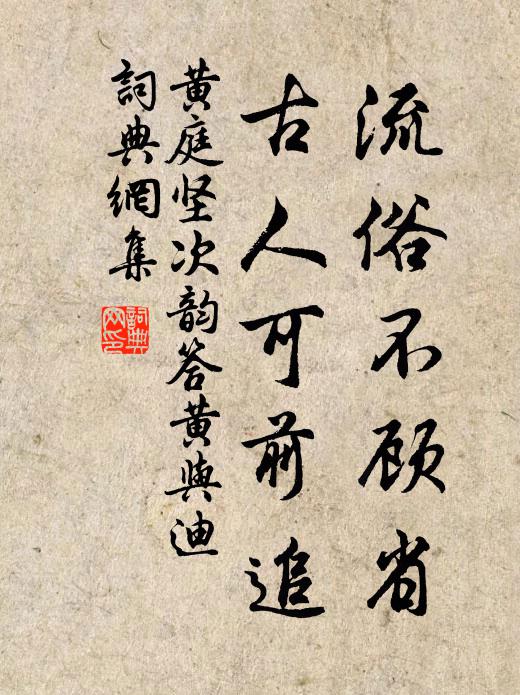 流俗不顾省
古人可前追
黄庭坚次韵答黄與迪
詞典網集
詞典
网印